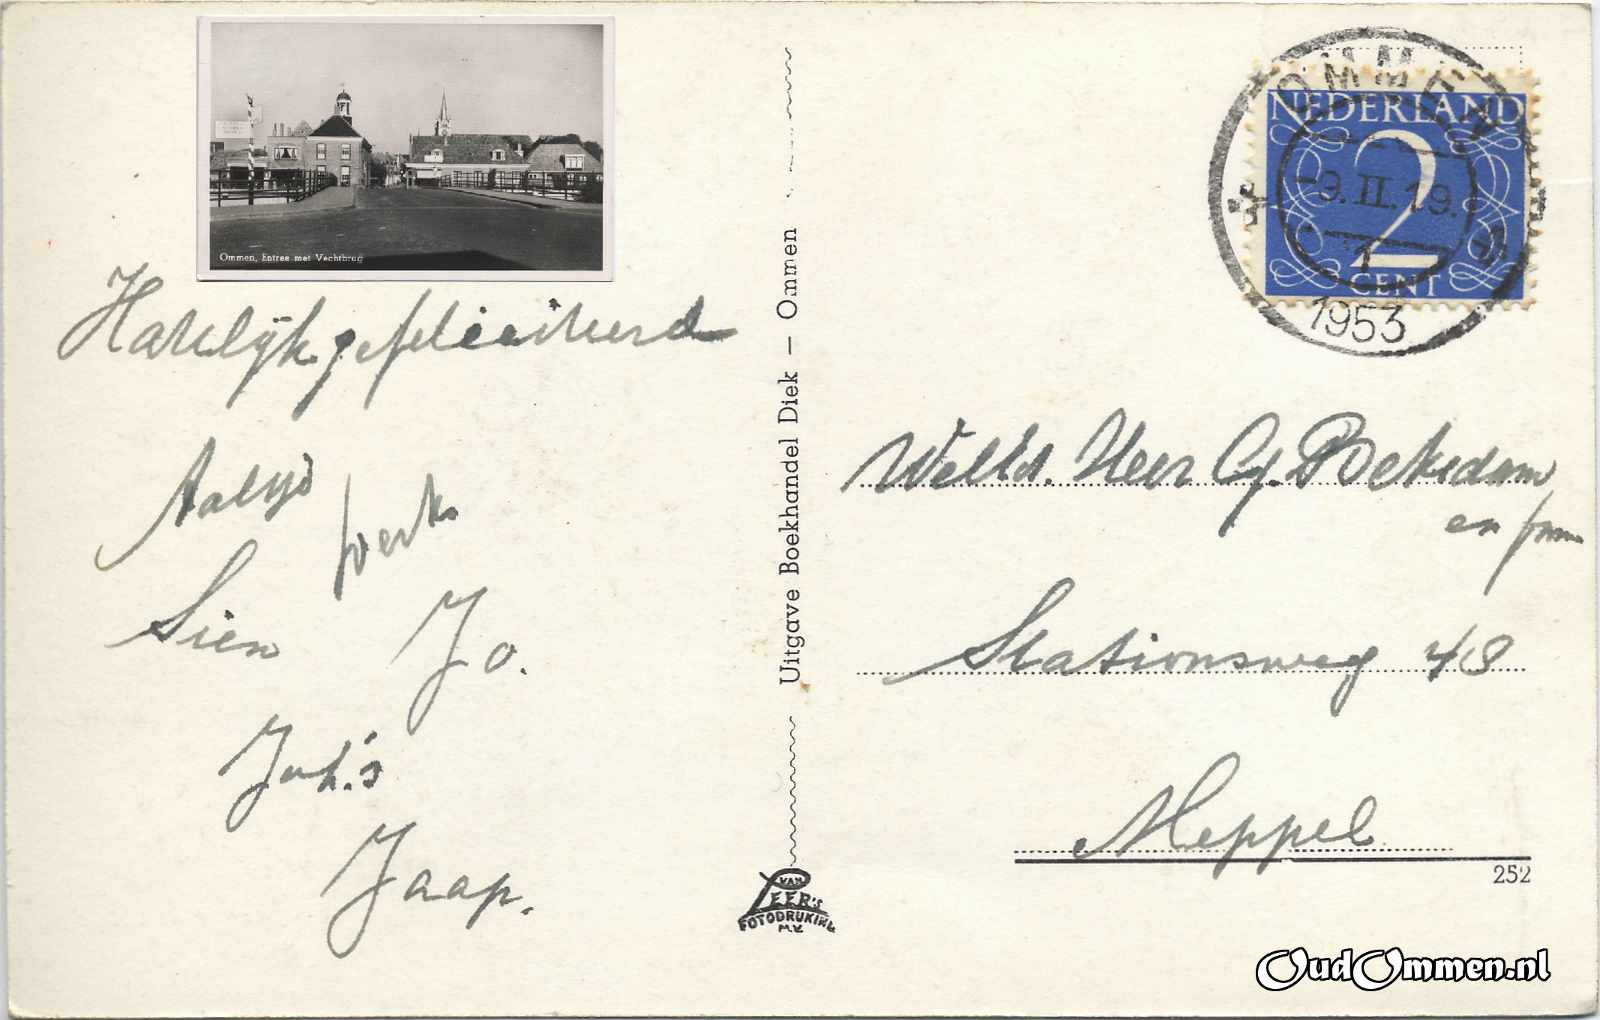 Ommen, Entree met Vechtbrug
Hartelijk gefeliciteerd
Aalijd
Sien Jo.
Joh.s
Jaap.
Uitgave Boekhandel Diek — Ommen
VAN
LEER's
FOTODRUKIND.
N.V.
OMMEN
NEDERLAND
2
CENT
-9.II.19.
1
1953
Heer G.
en fam
Stationsweg 48
Meppel
252
OudOmmen.nl